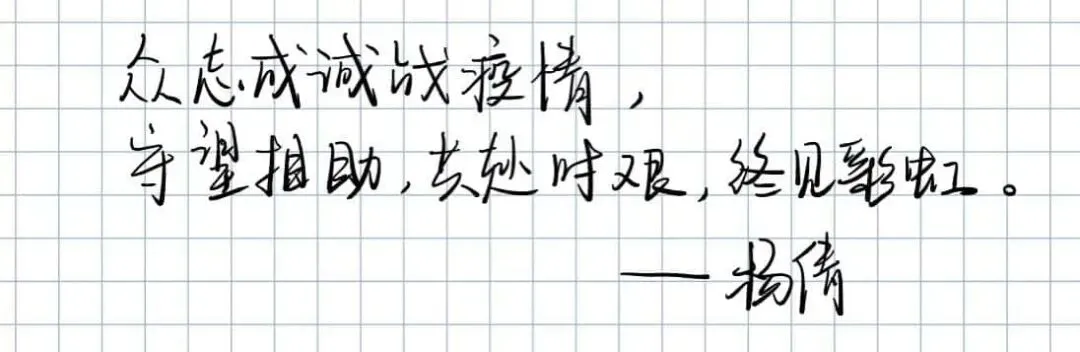 众志成诚战疫情，
守望相助，共赴时艰，终见彩虹。
——杨倩